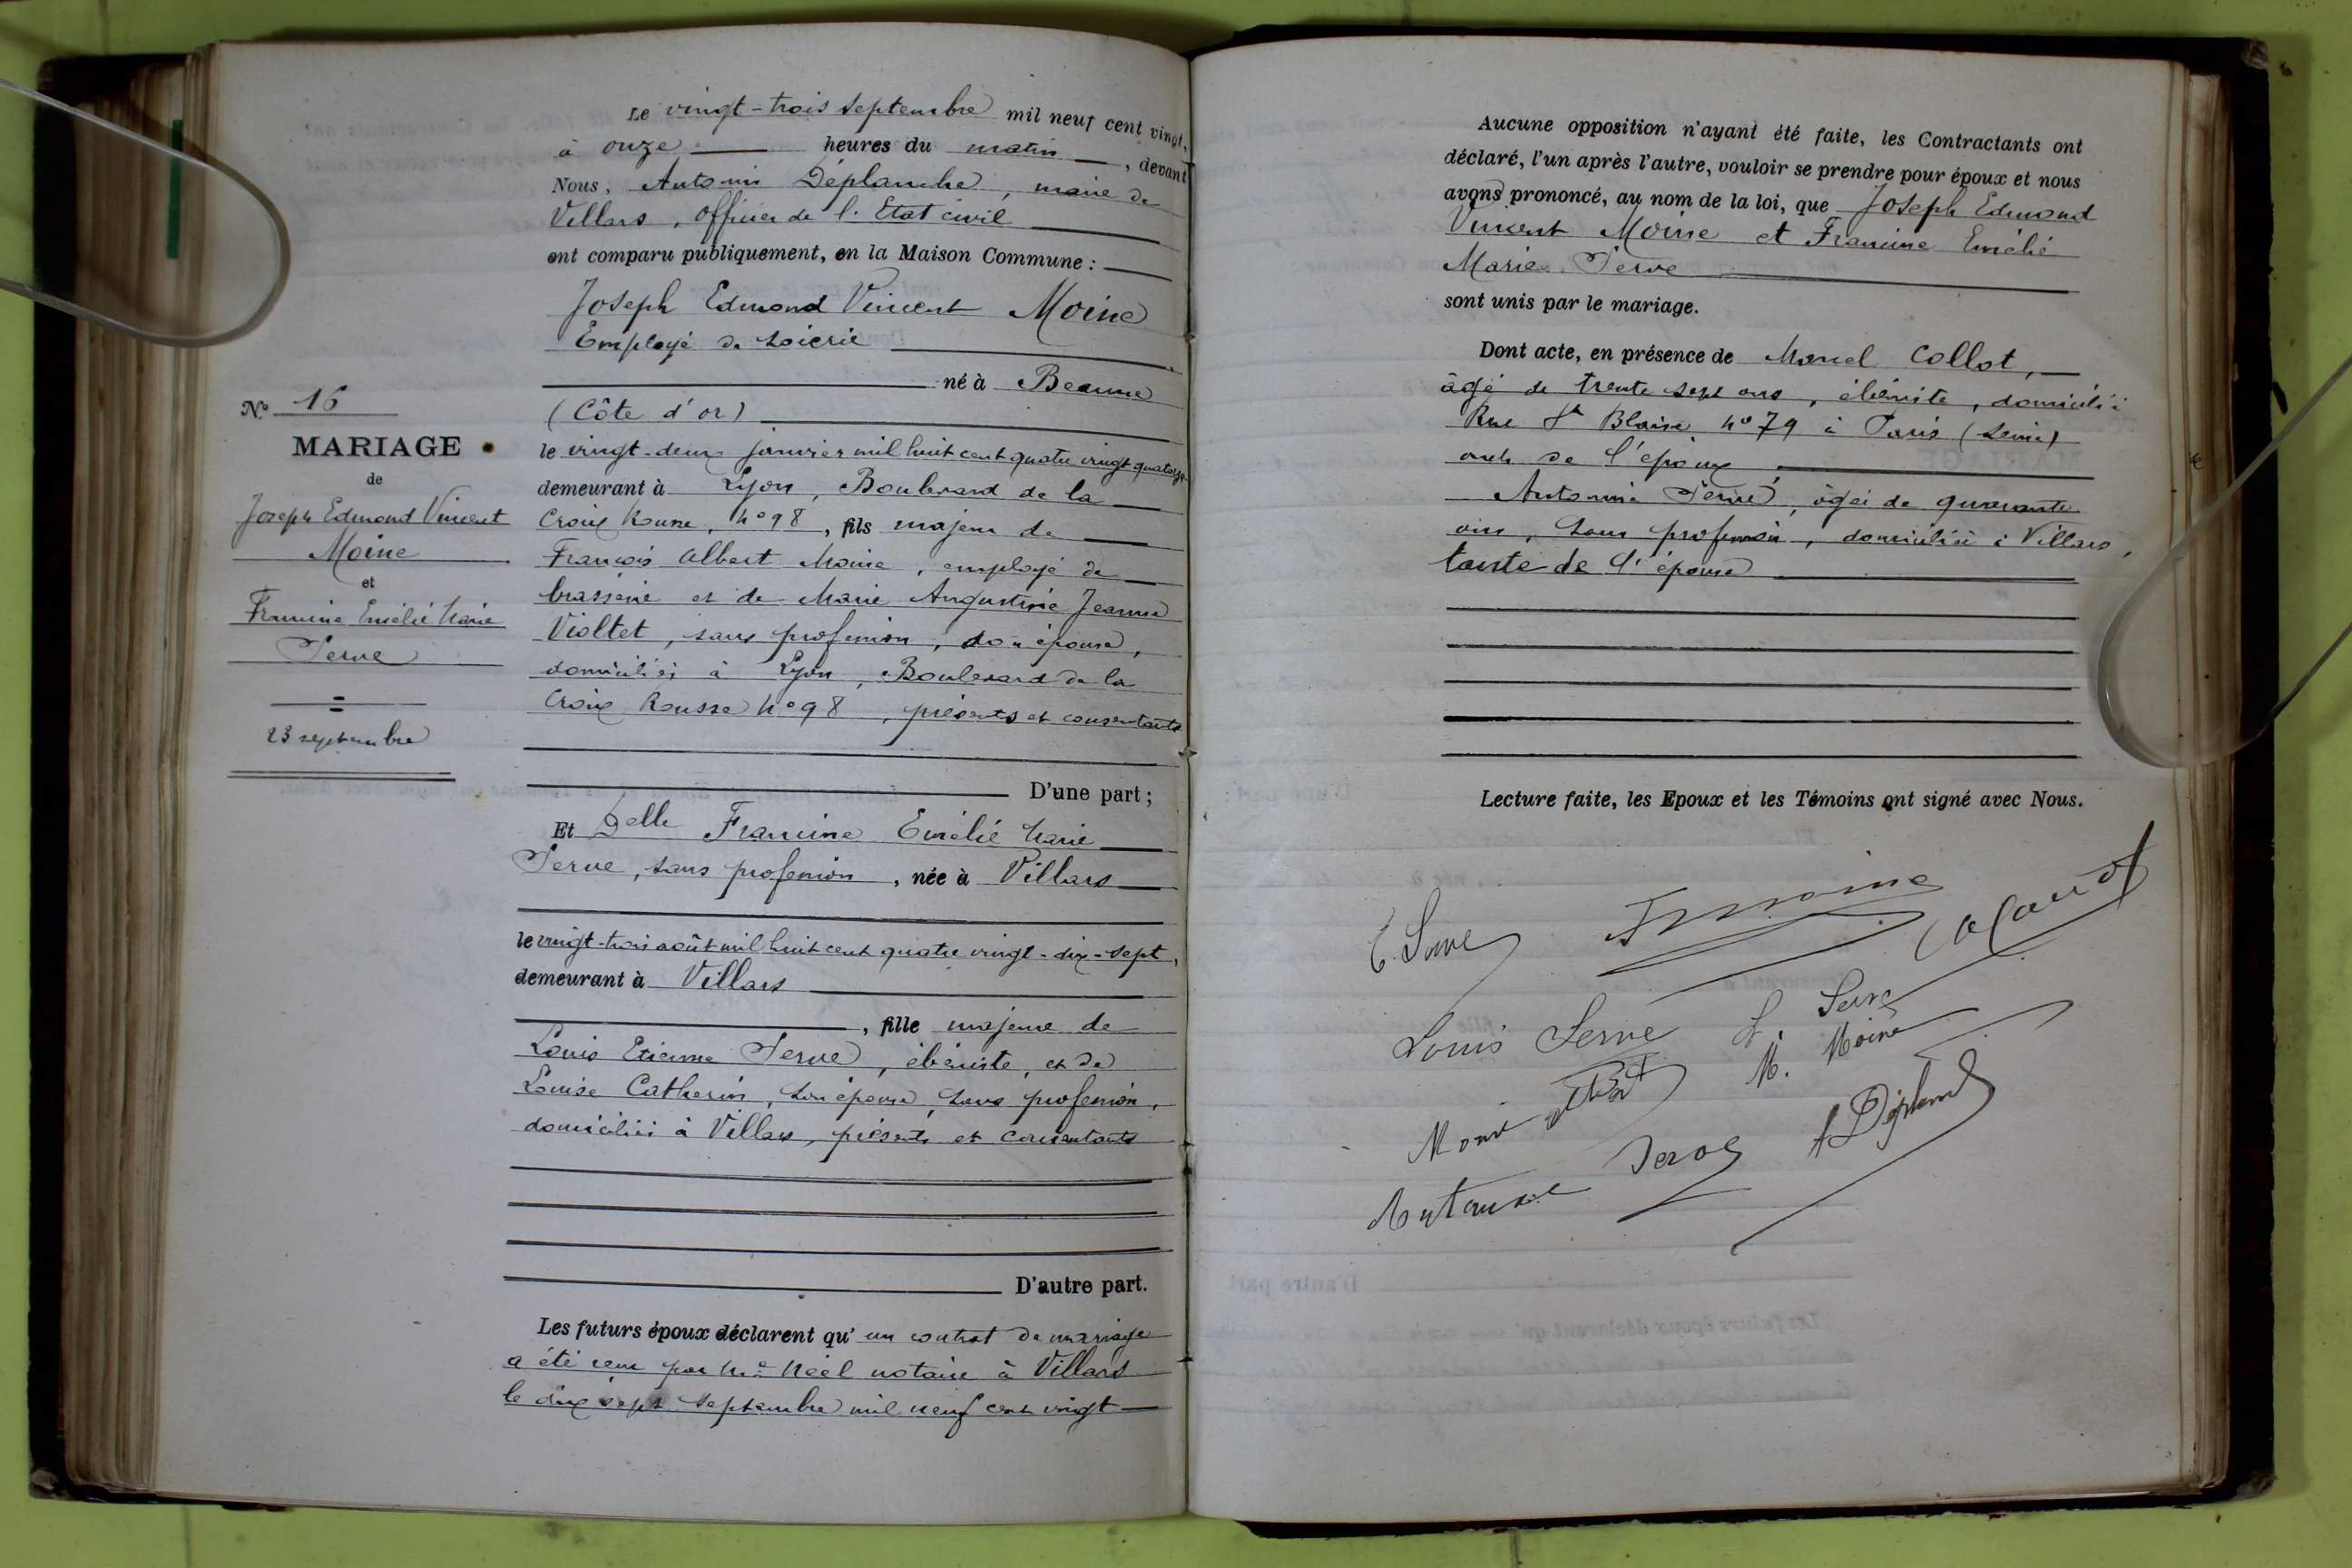 Le vingt-trois septembre mil neuf cent vingt,
à onze heures du matin, devant
Nous, Antonin Déplanche, maire de
Villars, Officier de l'Etat civil
ont comparu publiquement, en la Maison Commune :
Joseph Edmond Vincent Moine
Employé de soierie
né à Beaune
(Côte d'or)
le vingt-deux janvier mil huit cent quatre vingt quatorze
demeurant à Lyon, Boulevard de la
Croix Rousse, n° 98, fils majeur de
François Albert Moine, employé de
brasserie et de Marie Augustine Jeanne
Violtet, sans profession, son épouse,
domiciliés à Lyon, Boulevard de la
Croix Rousse n° 98, présents et consentants
D'une part ;
Et Delle Francine Emélie Marie
Serve, sans profession, née à Villars
le vingt-trois août mil huit cent quatre vingt-dix-sept,
demeurant à Villars
, fille majeure de
Louis Etienne Serve, ébéniste, et de
Louise Catherin, son épouse, sans profession,
domiciliés à Villars, présents et consentants
D'autre part.
Les futurs époux déclarent qu'un contrat de mariage
a été reçu par Me Néel notaire à Villars
le dix sept septembre mil neuf cent vingt
N° 16
MARIAGE
de
Joseph Edmond Vincent
Moine
et
Francine Emélie Marie
Serve
23 septembre
Aucune opposition n'ayant été faite, les Contractants ont
déclaré, l'un après l'autre, vouloir se prendre pour époux et nous
avons prononcé, au nom de la loi, que Joseph Edmond
Vincent Moine et Francine Emélie
Marie Serve
sont unis par le mariage.
Dont acte, en présence de Marcel Collot,
âgé de trente sept ans, ébéniste, domicilié
Rue St Blaise n° 79 à Paris (Seine)
oncle de l'époux,
Antonine Serve, âgée de quarante
ans, sans profession, domiciliée à Villars,
tante de l'épouse
Lecture faite, les Epoux et les Témoins ont signé avec Nous.
E. Serve
Moine
Louis Serve
L. Serve
Moine Albert
M. Moine
Antonine Serve
A Déplanche